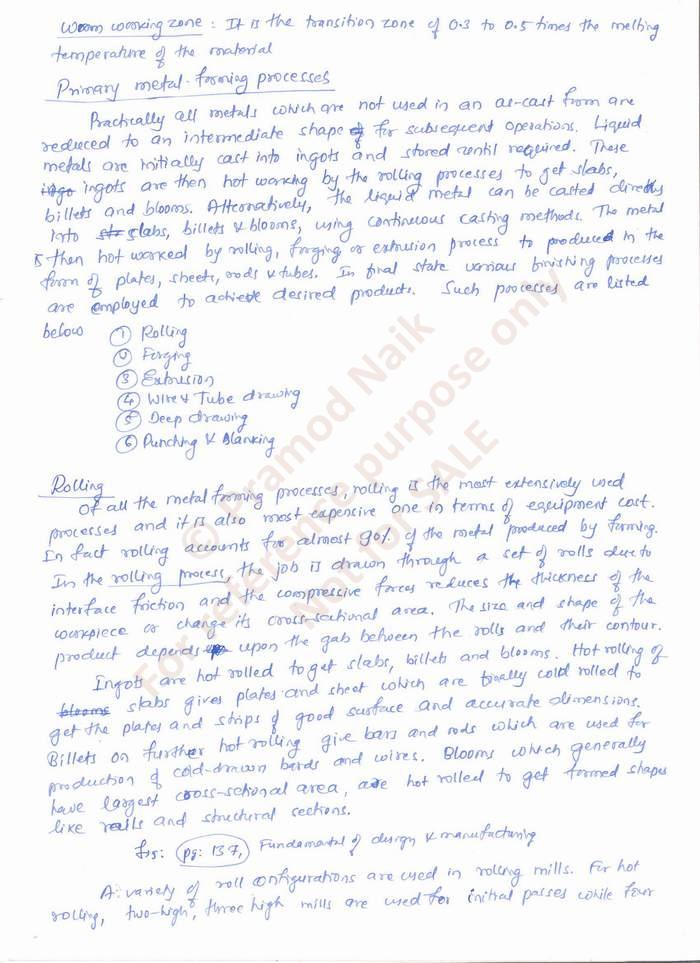 Worm woorking zone : It is the transition zone of 0.3 to 0.5 times the melting
temperature of the material
Primary metal-forming processes
Practically all metals which are not used in an as-cast from are
reduced to an intermediate shape for subsequent operations. Liquid
metals are initially cast into ingots and stored until required. These
ingots are then hot working by the rolling processes to get slabs,
billets and blooms. Alternatively, the liquid metal can be casted directly
into slabs, billets & blooms, using continuous casting methods. The metal
is then hot worked by rolling, forging or extrusion process to produced in the
form of plates, sheets, rods & tubes. In final state various finishing processes
are employed to achieve desired products. Such processes are listed
below
① Rolling
② Forging
③ Extrusion
④ Wire & Tube drawing
⑤ Deep drawing
⑥ Punching & Blanking
Rolling
Of all the metal forming processes, rolling is the most extensively used
processes and it is also most expensive one in terms of equipment cost.
In fact rolling accounts for almost 90% of the metal produced by forming.
In the rolling process, the job is drawn through a set of rolls due to
interface friction and the compressive forces reduces the thickness of the
workpiece or change its cross-sectional area. The size and shape of the
product depends upon the gab between the rolls and their contour.
Ingots are hot rolled to get slabs, billets and blooms. Hot rolling of
blooms slabs gives plates and sheet which are finally cold rolled to
get the plates and strips of good surface and accurate dimensions.
Billets on further hot rolling give bars and rods which are used for
production of cold-drawn bards and wires. Blooms which generally
have largest cross-sctional area, are hot rolled to get formed shapes
like rails and structural sections.
fig: pg: 137, Fundamental of design & manufacturing
A variety of roll configurations are used in rolling mills. For hot
rolling, two-high, three high mills are used for initial passes while four
© Pramod Naik
For reference purpose only
Not for SALE